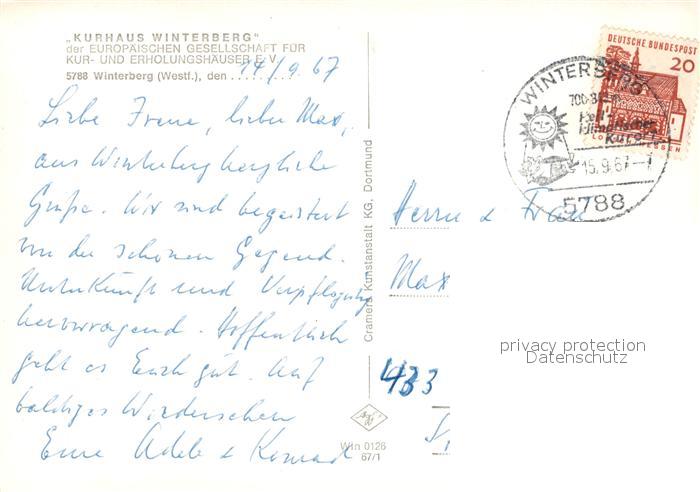 „KURHAUS WINTERBERG“
der EUROPÄISCHEN GESELLSCHAFT FÜR
KUR- UND ERHOLUNGSHÄUSER E.V.
5788 Winterberg (Westf.), den 14/9.67
Liebe Irene, lieber Max,
aus Winterberg herzliche
Grüße. Wir sind begeistert
von der schönen Gegend.
Unterkunft und Verpflegung
hervorragend. Hoffentlich
geht es Euch gut. Auf
baldiges Wiedersehen
Eure Adele & Konrad
Cramers Kunstanstalt KG, Dortmund
Win 0126
67/1
DEUTSCHE BUNDESPOST
20
WINTERBERG
Kurort
15.9.67
5788
Herrn & Frau
Max
433
privacy protection
Datenschutz